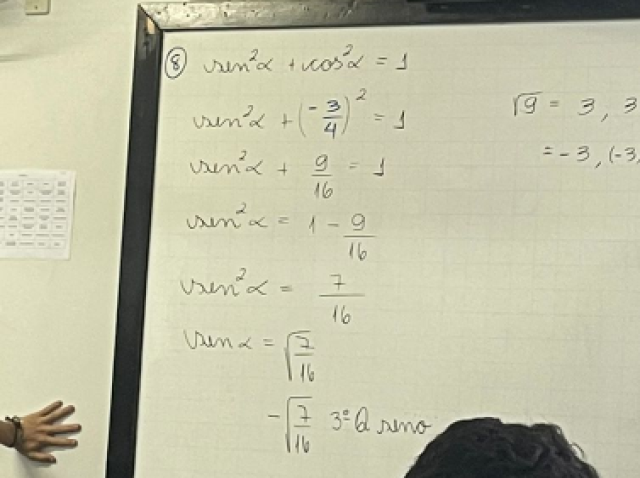 ⑧ sen²α + cos²α = 1
sen²α + (-3/4)² = 1
sen²α + 9/16 = 1
sen²α = 1 - 9/16
sen²α = 7/16
sen α = √7/16
-√7/16 3º Q seno
√9 = 3, 3
= -3, (-3,